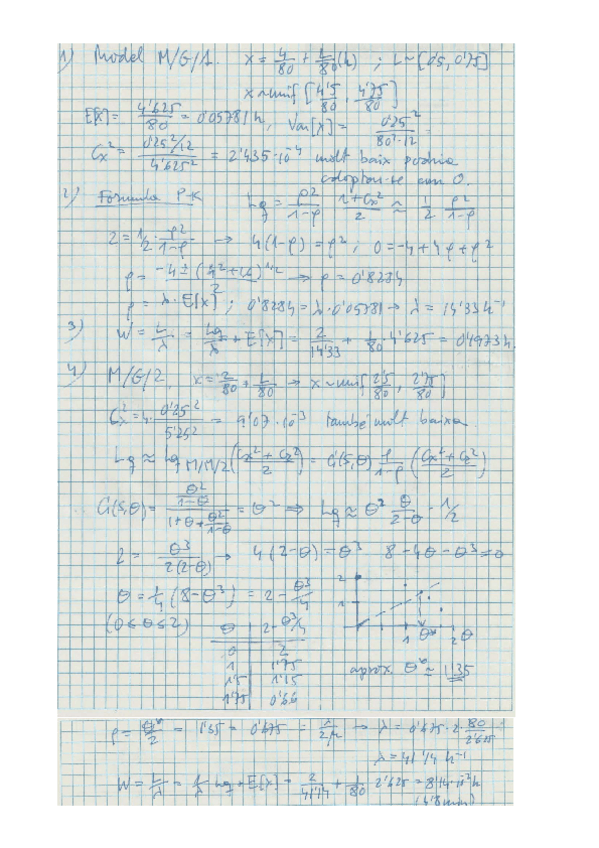 1) Model M/G/1. x = 4/80 + L/80 (h) ; L ~ [0'5, 0'75]
x ~ unif [4'5/80, 4'75/80]
E[x] = 4'625/80 = 0'05781 h, Var[x] = 0'25²/80²·12
Cx² = 0'25²/12 / 4'625² = 2'435·10⁻⁴ molt baix podria
adoptar-se com 0.
2) Fórmula P-K Lq = ρ²/1-ρ 1+Cx²/2 ≈ 1/2 ρ²/1-ρ
2 = 1/2 · ρ²/1-ρ → 4(1-ρ) = ρ² ; 0 = -4 + 4ρ + ρ²
ρ = -4 ± (4²+16)^1/2 / 2 → ρ = 0'8284
ρ = λ·E[x] ; 0'8284 = λ·0'05781 → λ = 14'33 h⁻¹
3) W = L/λ = Lq/λ + E[x] = 2/14'33 + 1/80 · 4'625 = 0'1973 h.
4) M/G/2. x = 2/80 + L/80 → x ~ unif [2'5/80, 2'75/80]
també molt baixa
Lq ≈ Lq M/M/2 (Cx² + Cτ² / 2) = C(s,θ) ρ/1-ρ (Cx² + Cτ² / 2)
C(s,θ) = θ²/2-θ / 1+θ+θ²/2-θ = ⇒ Lq ≈ θ/2-θ · 1/2
2 = θ³/2(2-θ) → 4(2-θ) = θ³ 8-4θ-θ³ = 0
θ = 1/4 (8-θ³) = 2 - θ³/4
(0 ≤ θ ≤ 2)
θ | 2-θ³/4
0 | 2
1 | 1'75
1'5 | 1'15
1'75 | 0'66
2
1
1 θ* 2 θ
aprox. θ* ≈ 1'35
ρ = θ*/2 = 1'35 = 0'675 = λ/2μ → λ = 0'675·2·80/2'625
λ = 41'14 h⁻¹
W = L/λ = 1/λ Lq + E[x] = 2/41'14 + 1/80 · 2'625 = 8'14·10⁻²h
(4'8 min)